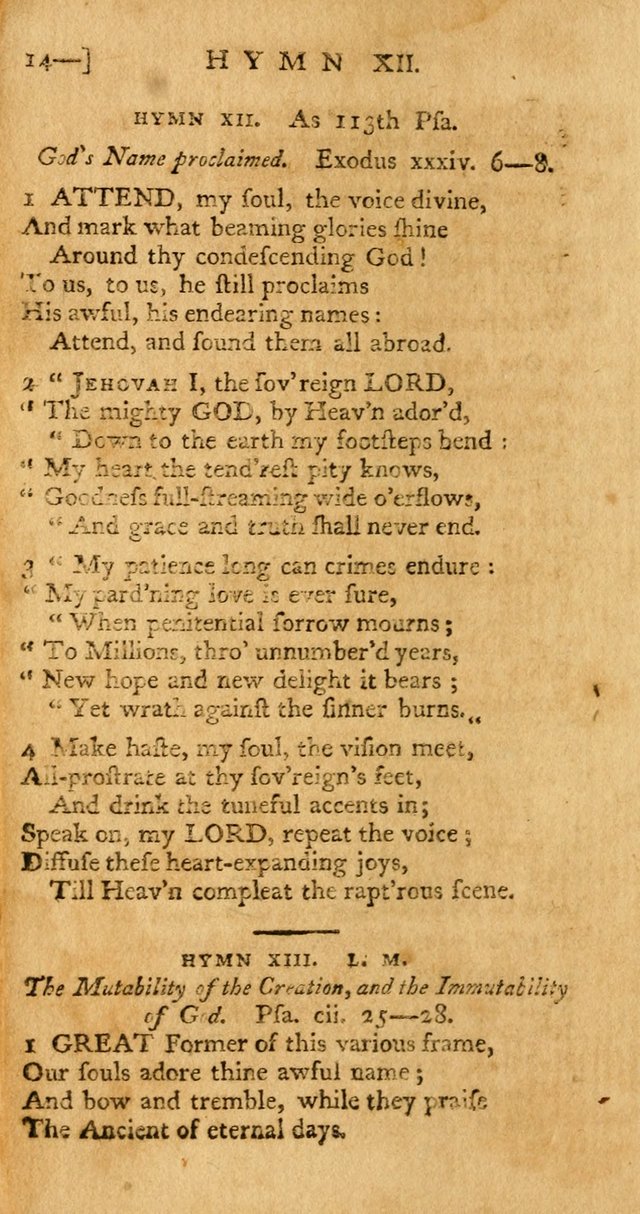 14—]          H Y M N  XII.
HYMN XII.  As 113th Pſa.
God's Name proclaimed.  Exodus xxxiv. 6—8.
1 ATTEND, my ſoul, the voice divine,
And mark what beaming glories ſhine
Around thy condeſcending God!
To us, to us, he ſtill proclaims
His awful, his endearing names:
Attend, and ſound them all abroad.
2 “ JEHOVAH I, the ſov'reign LORD,
“ The mighty GOD, by Heav'n ador'd,
“ Down to the earth my footſteps bend:
“ My heart the tend'reſt pity knows,
“ Goodneſs full-ſtreaming wide o'erflows,
“ And grace and truth ſhall never end.
3 “ My patience long can crimes endure:
“ My pard'ning love is ever ſure,
“ When penitential ſorrow mourns;
“ To Millions, thro' unnumber'd years,
“ New hope and new delight it bears;
“ Yet wrath againſt the ſinner burns.„
4 Make haſte, my ſoul, the viſion meet,
All-proſtrate at thy ſov'reign's feet,
And drink the tuneful accents in;
Speak on, my LORD, repeat the voice;
Diffuſe theſe heart-expanding joys,
Till Heav'n compleat the rapt'rous ſcene.
HYMN XIII.  L. M.
The Mutability of the Creation, and the Immutability
of God.  Pſa. cii. 25—28.
1 GREAT Former of this various frame,
Our ſouls adore thine awful name;
And bow and tremble, while they praiſe
The Ancient of eternal days.